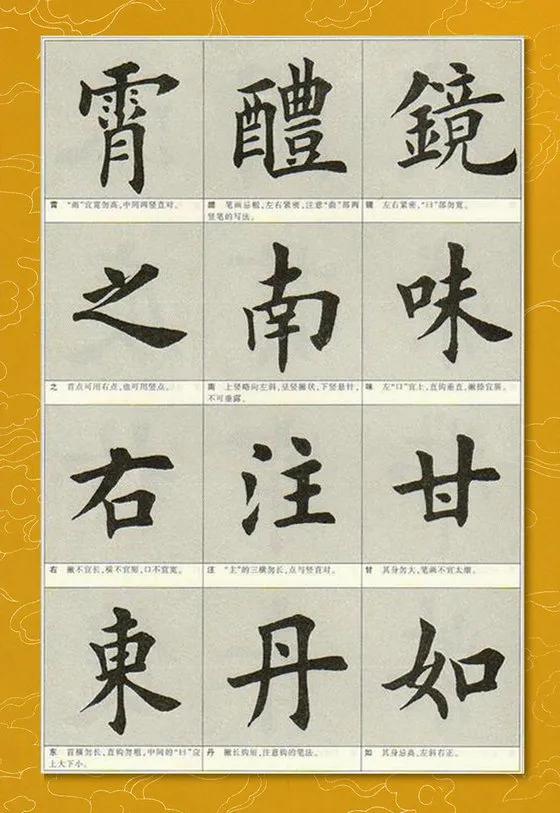 鏡
镜 左右紧密,“曰”部勿宽。
味
味 左“口”宜上,直钩垂直,撇捺宜展。
甘
甘 其身勿大,笔画不宜太细。
如
如 其身忌高,左斜右正。
醴
醴 笔画忌粗,左右紧密,注意“曲”部两
竖笔的写法。
南
南 上竖略向左斜,呈竖撇状,下竖悬针,
不可垂露。
注
注 “主”的三横勿长,点与竖直对。
丹
丹 撇长钩短,注意钩的笔法。
霄
霄 “雨”宜宽勿高,中间两竖直对。
之
之 首点可用右点,也可用竖点。
右
右 撇不宜长,横不宜短,口不宜宽。
東
东 首横勿长,直钩勿粗,中间的“曰”应
上大下小。